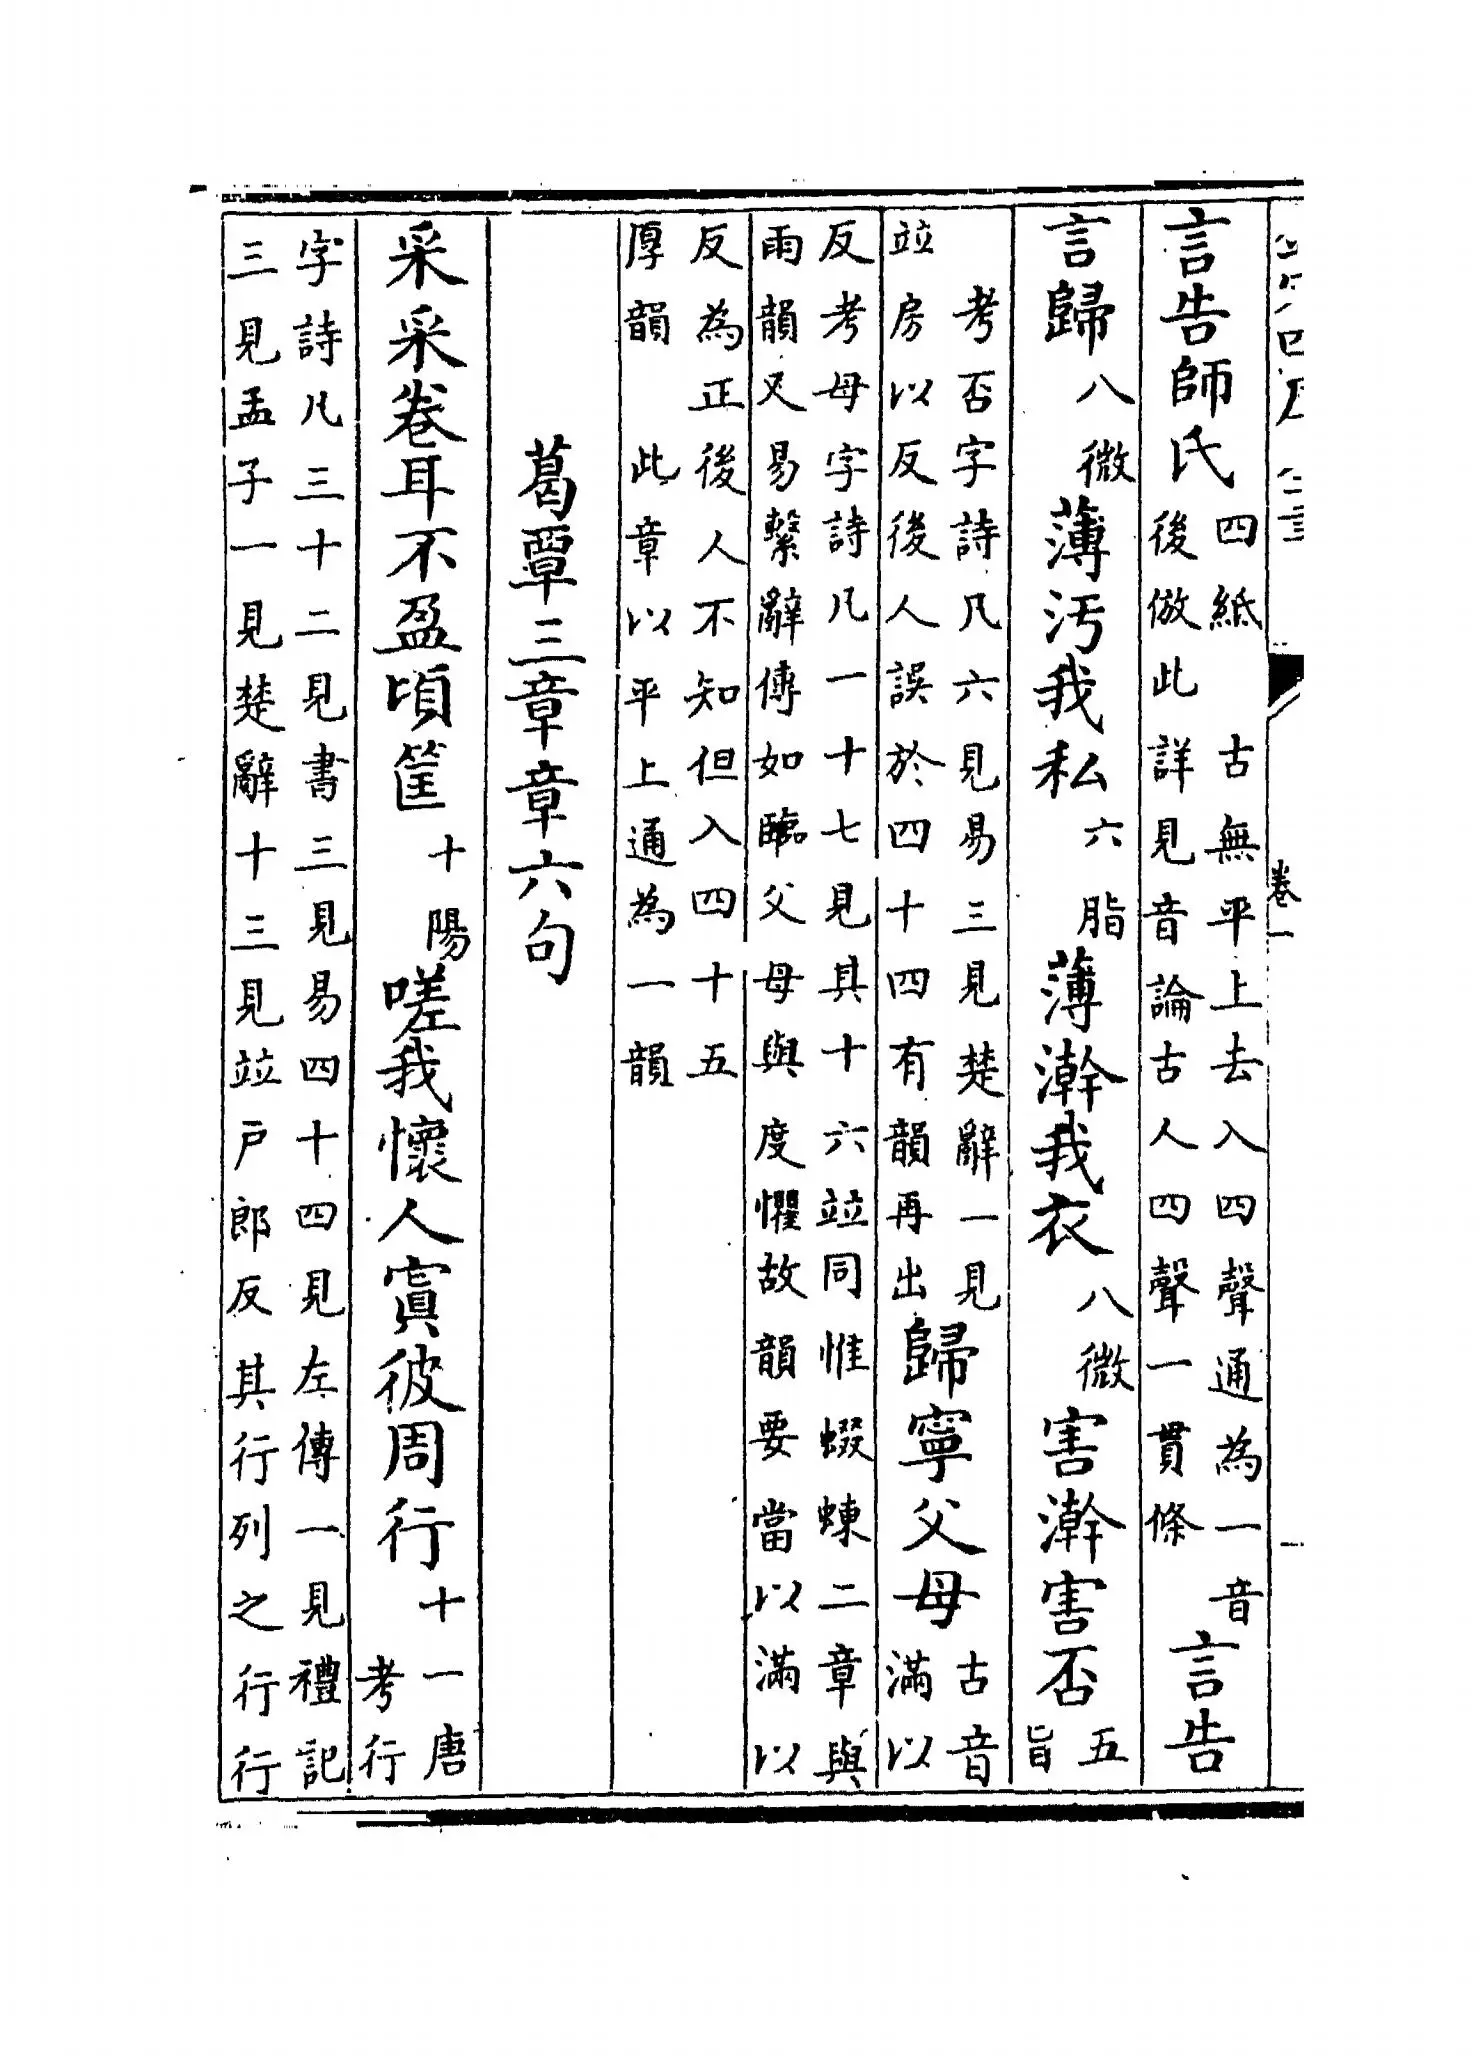 卷一
言告師氏四紙 古無平上去入四聲通為一音後倣此詳見音論古人四聲一貫條言告
言歸八微薄汚我私六脂薄澣我衣八微害澣害否五旨
考否字詩凡六見易三見楚辭一見竝房以反後人誤於四十四有韻再出歸寧父母古音滿以
反考母字詩凡一十七見其十六竝同惟蝃蝀二章與雨韻又易繫辭傳如臨父母與度懼故韻要當以滿以
反為正後人不知但入四十五厚韻 此章以平上通為一韻
葛覃三章章六句
采采卷耳不盈頃筐十陽嗟我懷人寘彼周行十一唐考行
字詩凡三十二見書三見易四十四見左傳一見禮記三見孟子一見楚辭十三見竝戶郎反其行列之行行